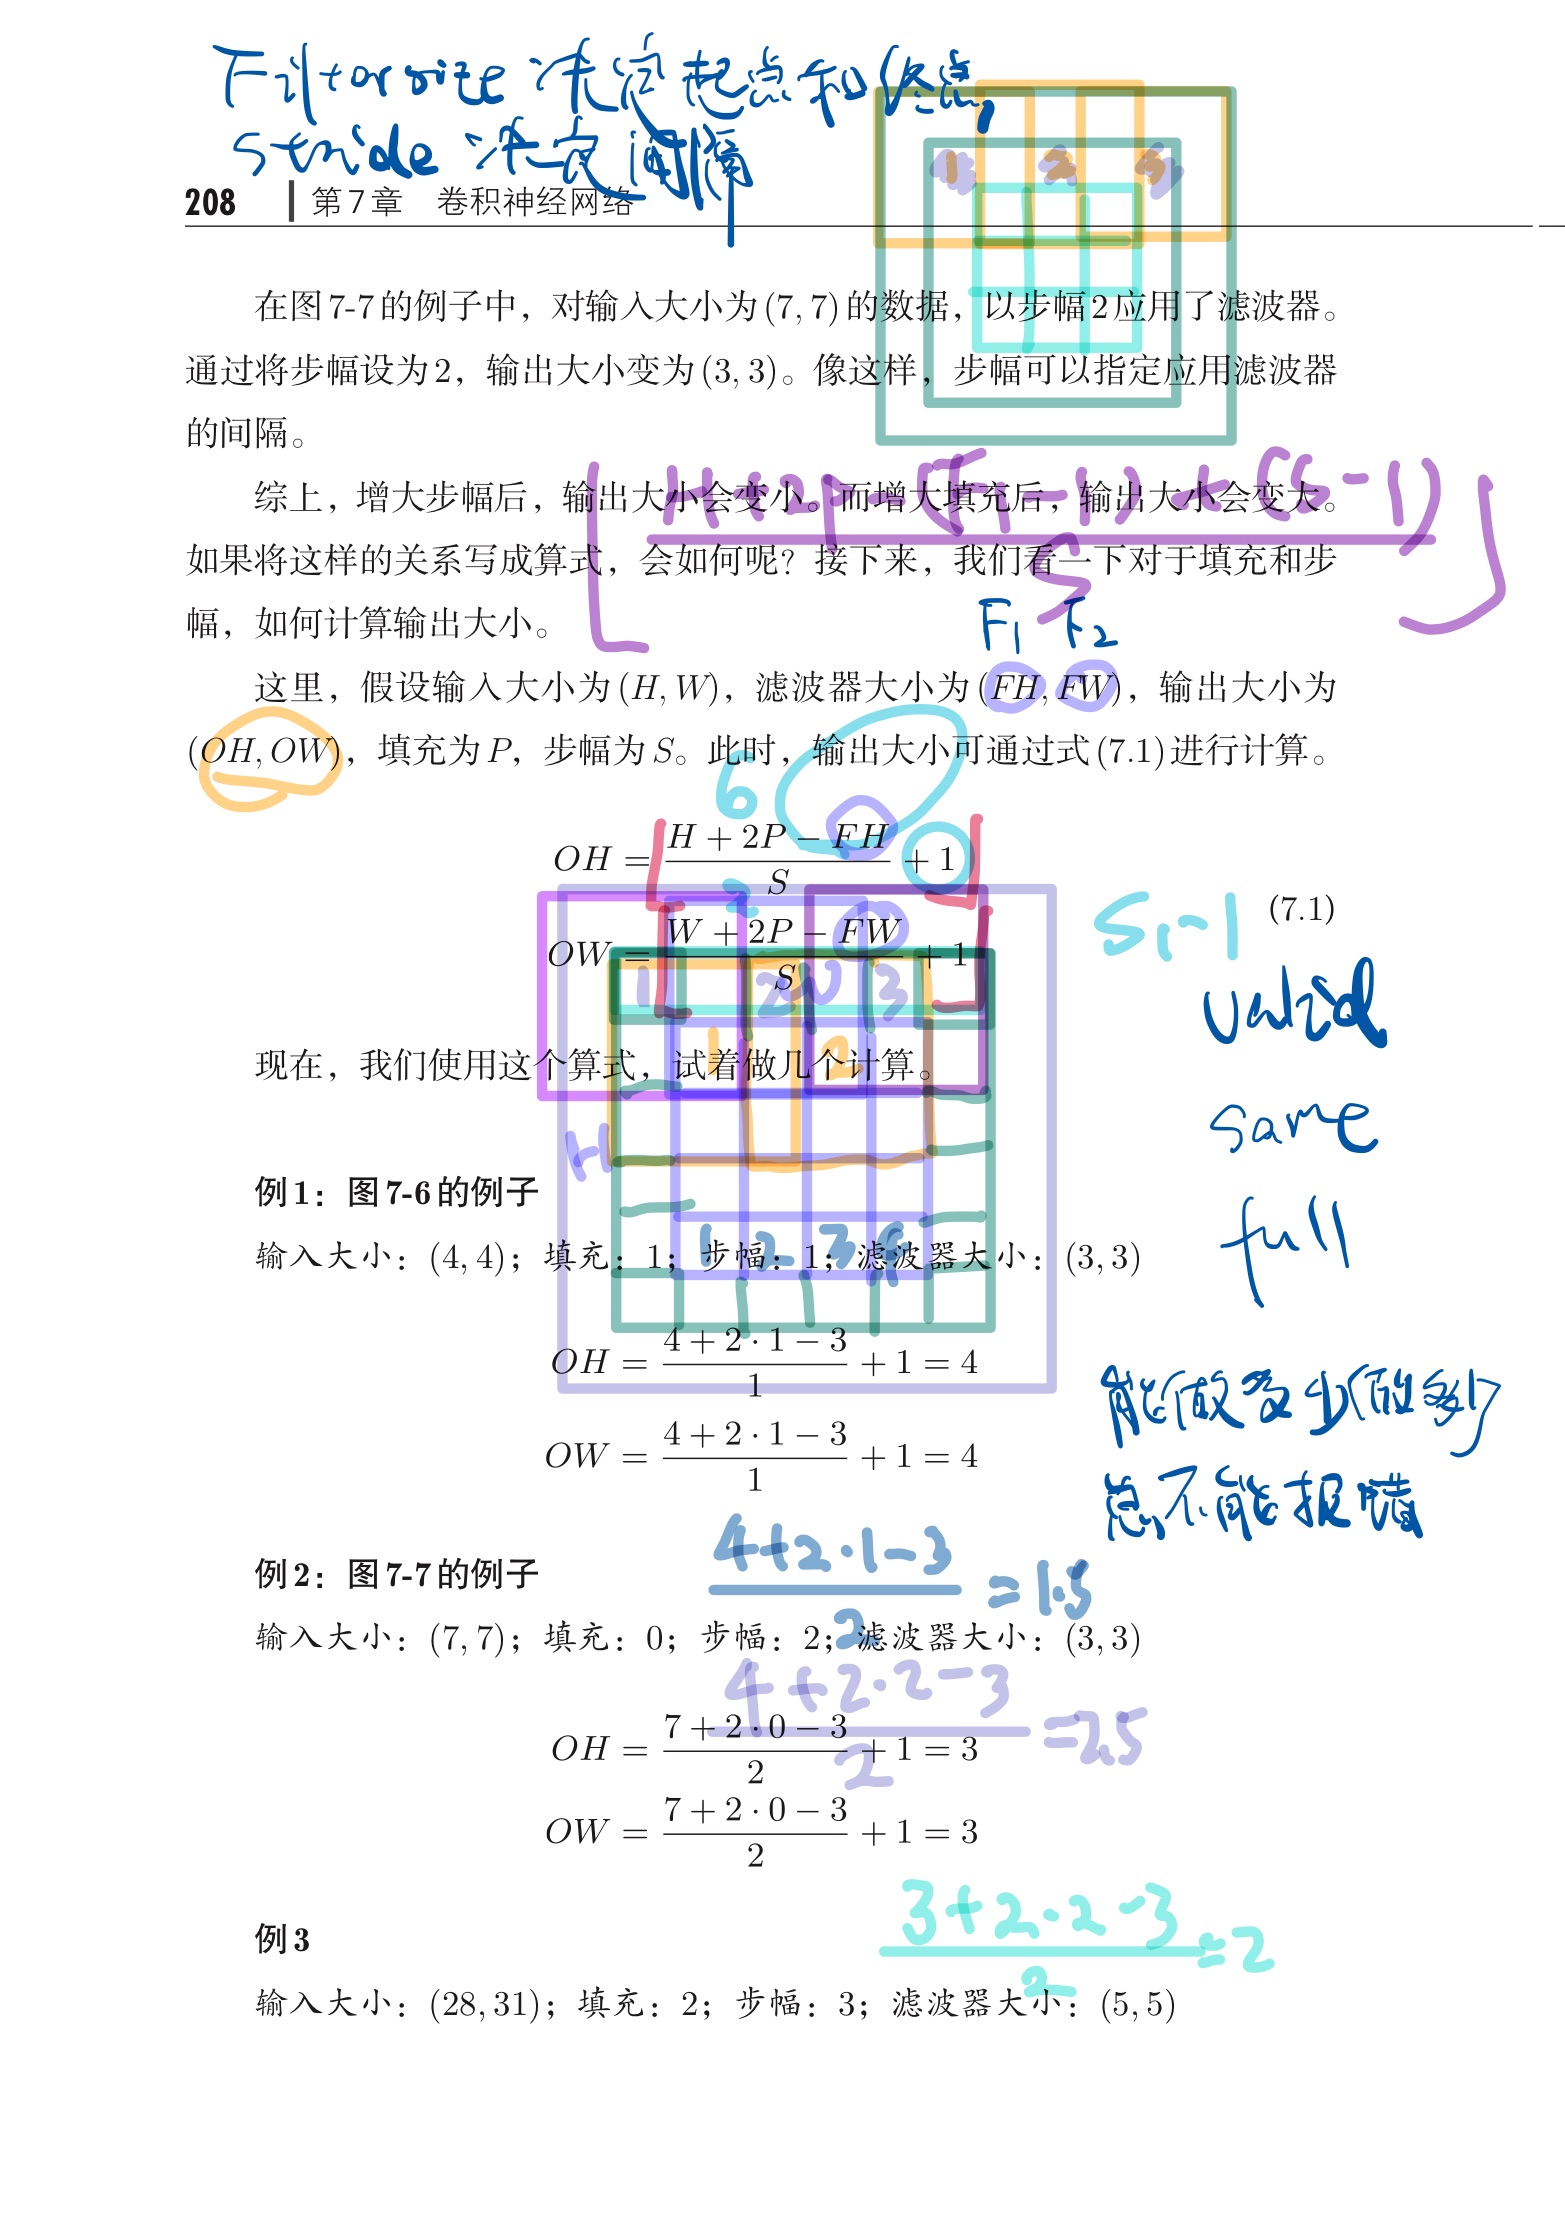 Filtor size 决定起点和终点,
stride 决定间隔
208 第7章 卷积神经网络
在图7-7的例子中，对输入大小为(7, 7)的数据，以步幅2应用了滤波器。
通过将步幅设为2，输出大小变为(3, 3)。像这样，步幅可以指定应用滤波器
的间隔。
H+2P-(F₁-1)+(S-1)
S
综上，增大步幅后，输出大小会变小。而增大填充后，输出大小会变大。
如果将这样的关系写成算式，会如何呢？接下来，我们看一下对于填充和步
幅，如何计算输出大小。
F₁ F₂
这里，假设输入大小为(H, W)，滤波器大小为(FH, FW)，输出大小为
(OH, OW)，填充为P，步幅为S。此时，输出大小可通过式(7.1)进行计算。
6
OH = \frac{H + 2P − FH}{S} + 1
2
OW = \frac{W + 2P − FW}{S} + 1
(7.1)
S₁-1
1 2 3
valid
1 2
现在，我们使用这个算式，试着做几个计算。
same
H
例1：图7-6的例子
full
1 2 3 4
输入大小：(4, 4)；填充：1；步幅：1；滤波器大小：(3, 3)
OH = \frac{4 + 2 · 1 − 3}{1} + 1 = 4
能做多少做多少
OW = \frac{4 + 2 · 1 − 3}{1} + 1 = 4
总不能报错
\frac{4+2·1-3}{2} = 1.5
例2：图7-7的例子
输入大小：(7, 7)；填充：0；步幅：2；滤波器大小：(3, 3)
\frac{4+2·2-3}{2} = 2.5
OH = \frac{7 + 2 · 0 − 3}{2} + 1 = 3
OW = \frac{7 + 2 · 0 − 3}{2} + 1 = 3
\frac{3+2·2-3}{2} = 2
例3
输入大小：(28, 31)；填充：2；步幅：3；滤波器大小：(5, 5)